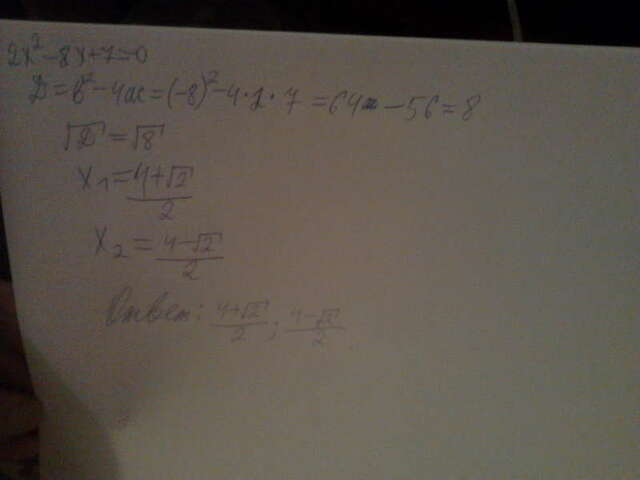 2x² - 8x + 7 = 0
D = b² - 4ac = (-8)² - 4 · 2 · 7 = 64 - 56 = 8
√D = √8
x₁ = (4+√2)/2
x₂ = (4-√2)/2
Ответ: (4+√2)/2 ; (4-√2)/2